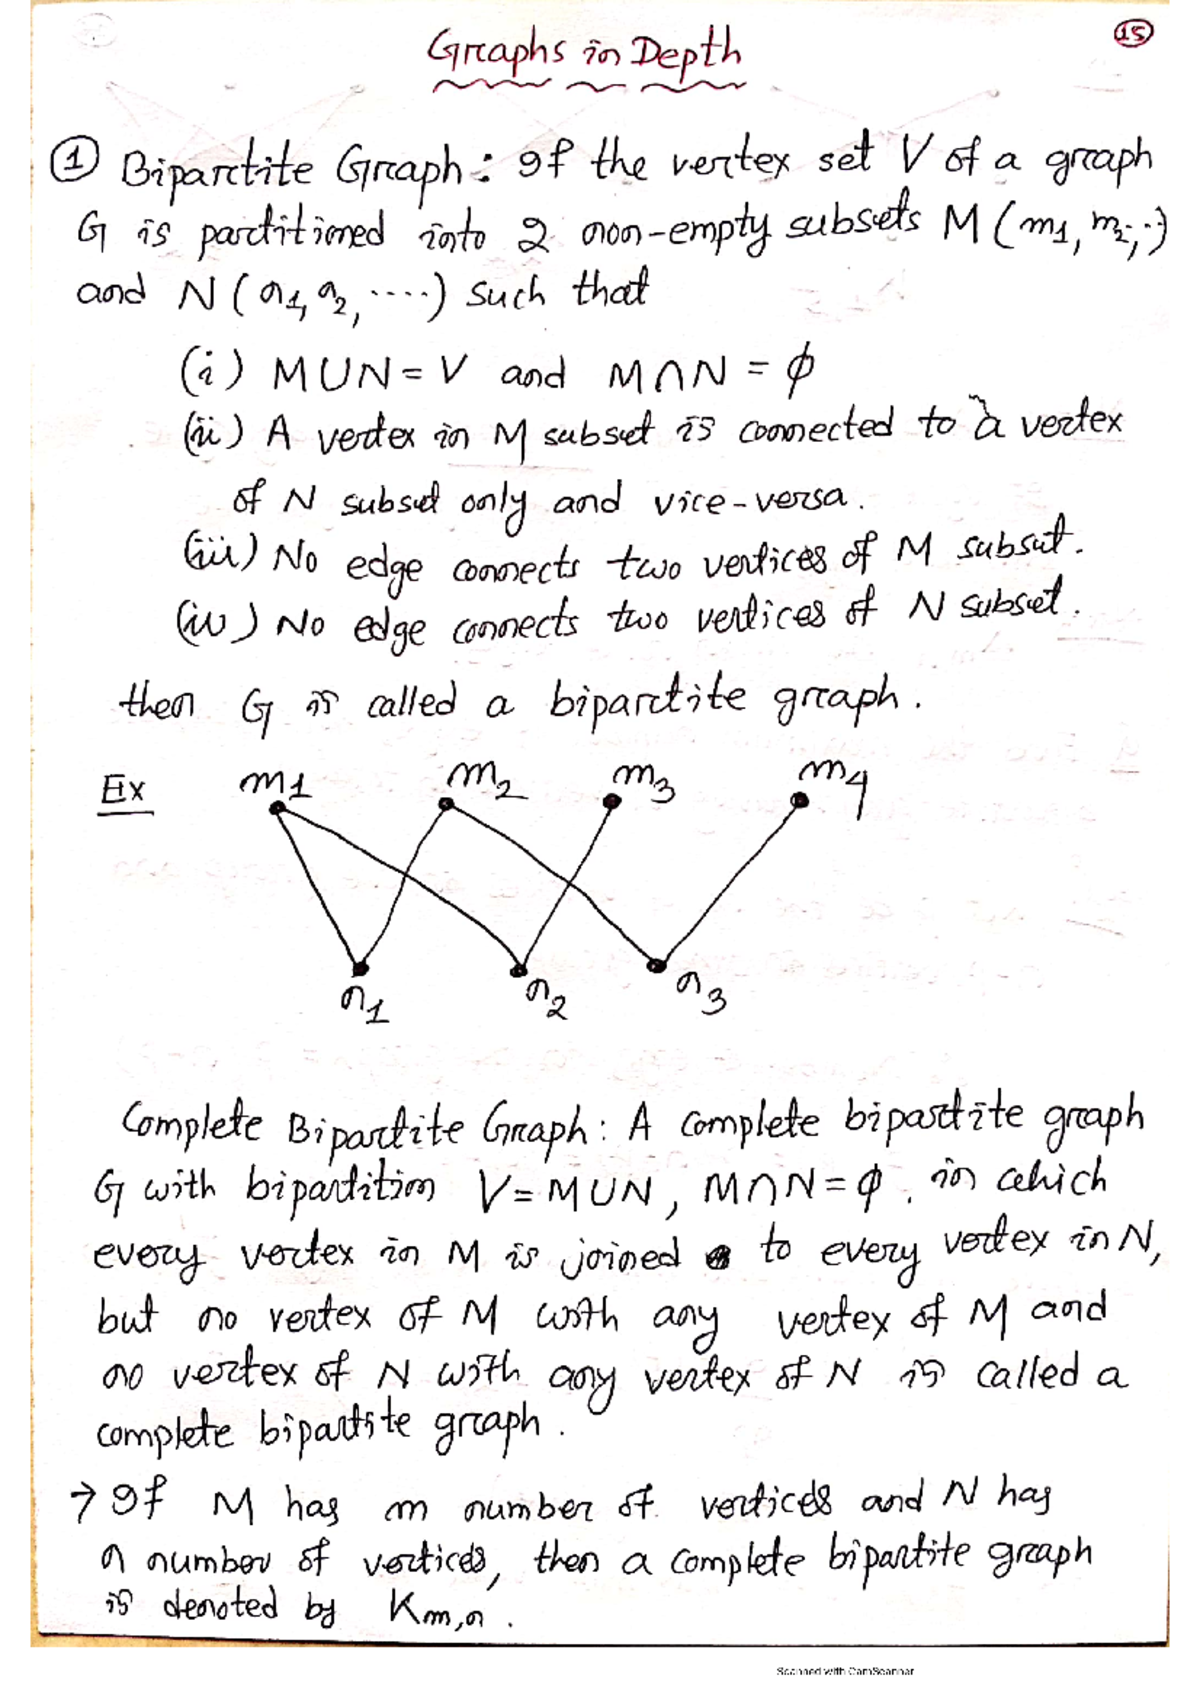 15
Graphs in Depth
① Bipartite Graph: If the vertex set V of a graph
G is partitioned into 2 non-empty subsets M (m1, m2, ..)
and N (n1, n2, ....) such that
(i) M∪N = V and M∩N = ϕ
(ii) A vertex in M subset is connected to a vertex
of N subset only and vice-versa.
(iii) No edge connects two vertices of M subset.
(iv) No edge connects two vertices of N subset.
then G is called a bipartite graph.
Ex m1 m2 m3 m4
n1 n2 n3
Complete Bipartite Graph: A complete bipartite graph
G with bipartition V = M∪N, M∩N = ϕ, in which
every vertex in M is joined to every vertex in N,
but no vertex of M with any vertex of M and
no vertex of N with any vertex of N is called a
complete bipartite graph.
→ If M has m number of vertices and N has
n number of vertices, then a complete bipartite graph
is denoted by Km,n.
Scanned with CamScanner